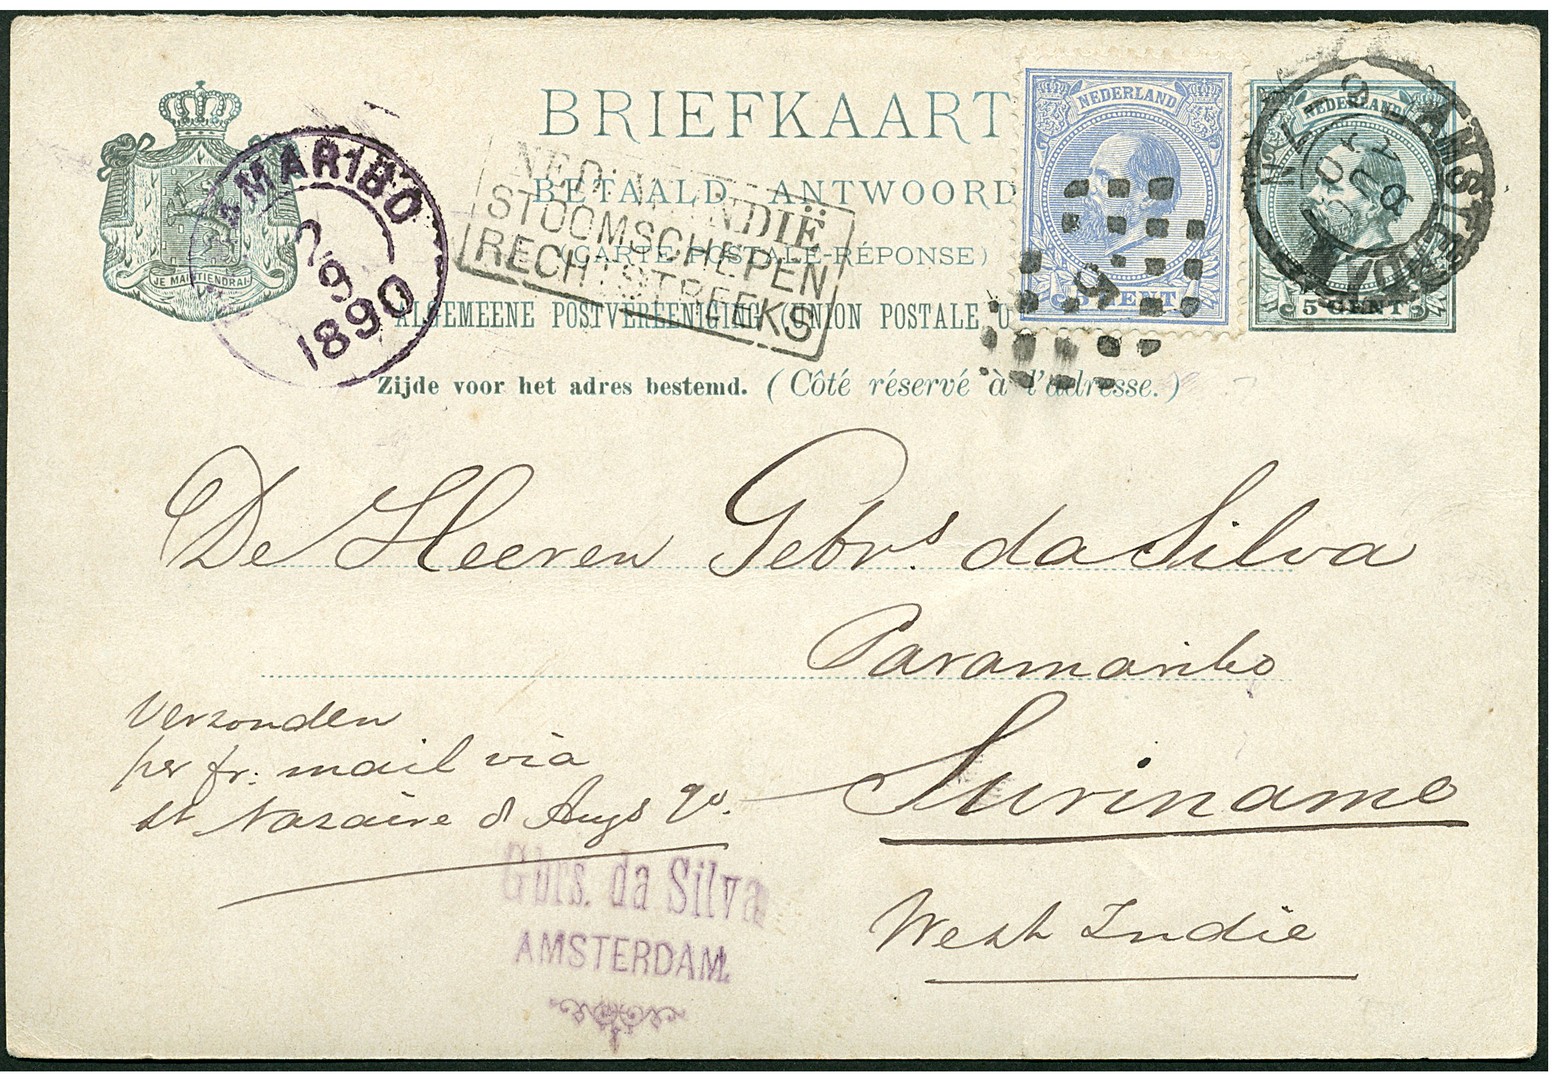 BRIEFKAART
BETAALD ANTWOORD
(CARTE POSTALE-RÉPONSE)
ALGEMEENE POSTVEREENIGING (UNION POSTALE U
Zijde voor het adres bestemd. (Côté réservé à l'adresse.)
JE MAINTIENDRAI
MARIBO
2
9
1890
NED: INDIË
STOOMSCHEPEN
RECHTSTREEKS
NEDERLAND
5 CENT
NEDERLAND
5 CENT
AMSTERDAM
De Heeren Gebrs da Silva
Paramaribo
Suriname
West Indie
Verzonden
per fr. mail via
st Nazaire 8 Augs 90.
Gbrs. da Silva
AMSTERDAM.